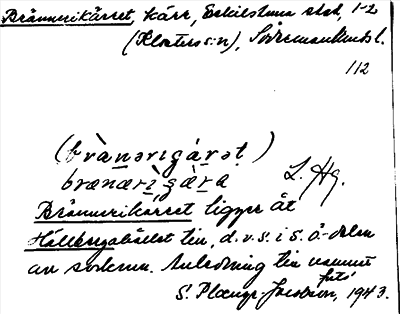 Brännerikärret, kärr, Eskilstuna stad, 1-2
(Klosters s:n), Södermanlands l.
112
(brànərıgárət)
brænærìgæ̀ra
L. Hg.
Brännerikärret ligger åt
Hällbergahållet till, d.v.s. i S.Ö-delen
av socknen. Anledning till namnet
S. Pleuge-Jacobson, 1943.